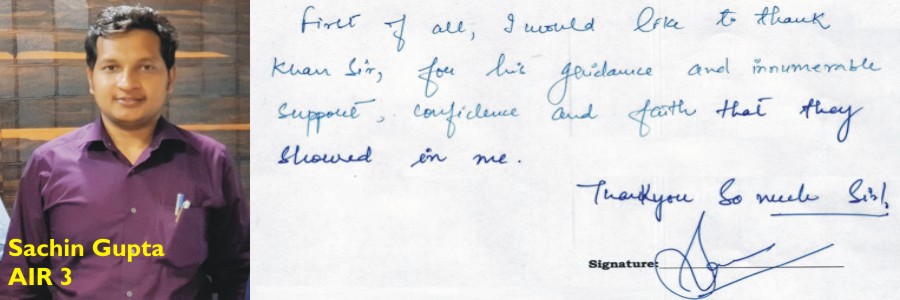 First of all, I would like to thank
Khan Sir, for his guidance and innumerable
support, confidence and faith that they
showed in me.
Thankyou So much Sir!
Signature:
Sachin Gupta
AIR 3